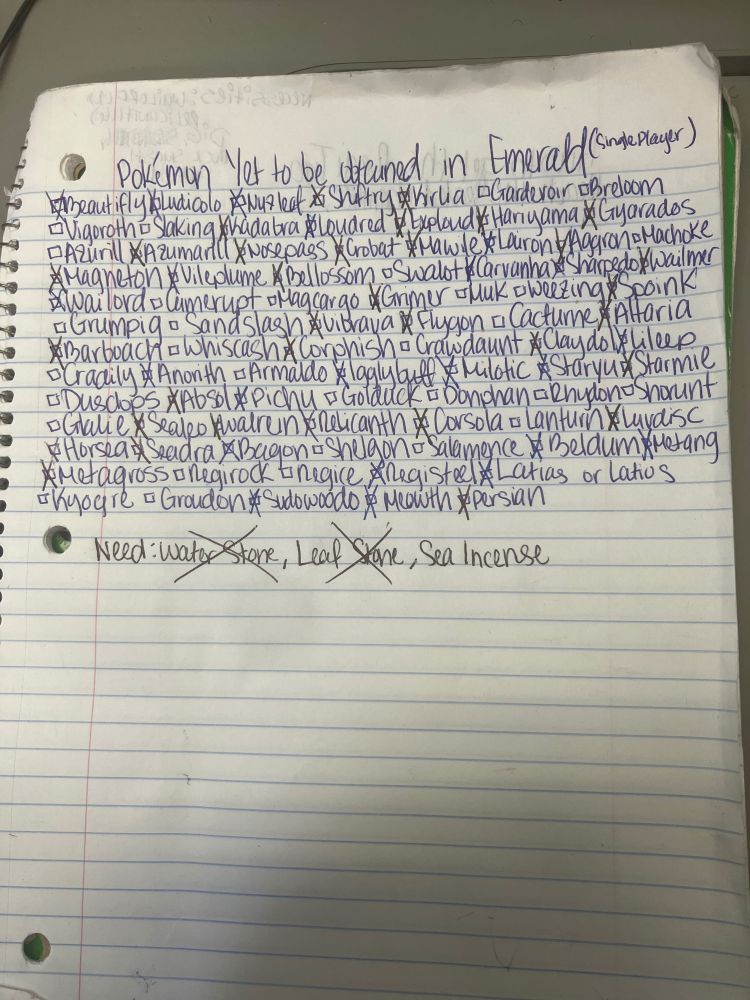 Pokemon Yet to be obtained in Emerald (Single Player)
☒Beautifly ☒Ludicolo ☒Nuzleaf ☒Shiftry ☒Kirlia ☐Gardevoir ☐Breloom
☐Vigoroth ☐Slaking ☒Kadabra ☒Loudred ☒Exploud ☒Hariyama ☒Gyarados
☐Azurill ☒Azumarill ☒Nosepass ☒Crobat ☒Mawile ☒Lairon ☒Aggron ☐Machoke
☒Magneton ☒Vileplume ☒Bellossom ☐Swalot ☒Carvanha ☒Sharpedo ☒Wailmer
☒Wailord ☐Camerupt ☐Magcargo ☒Grimer ☐Muk ☐Weezing ☒Spoink
☐Grumpig ☐Sandslash ☒Vibrava ☒Flygon ☐Cacturne ☒Altaria
☒Barboach ☐Whiscash ☒Corphish ☐Crawdaunt ☒Claydol ☒Lileep
☐Cradily ☒Anorith ☐Armaldo ☒Igglybuff ☒Milotic ☒Staryu ☒Starmie
☐Dusclops ☒Absol ☒Pichu ☐Golduck ☐Donphan ☐Rhydon ☐Snorunt
☐Glalie ☒Sealeo ☒Walrein ☒Relicanth ☒Corsola ☐Lanturn ☒Luvdisc
☒Horsea ☒Seadra ☒Bagon ☐Shelgon ☐Salamence ☒Beldum ☒Metang
☒Metagross ☐Regirock ☐Regice ☒Registeel ☒Latias or Latios
☐Kyogre ☐Groudon ☒Sudowoodo ☒Meowth ☒Persian
Need: Water Stone, Leaf Stone, Sea Incense